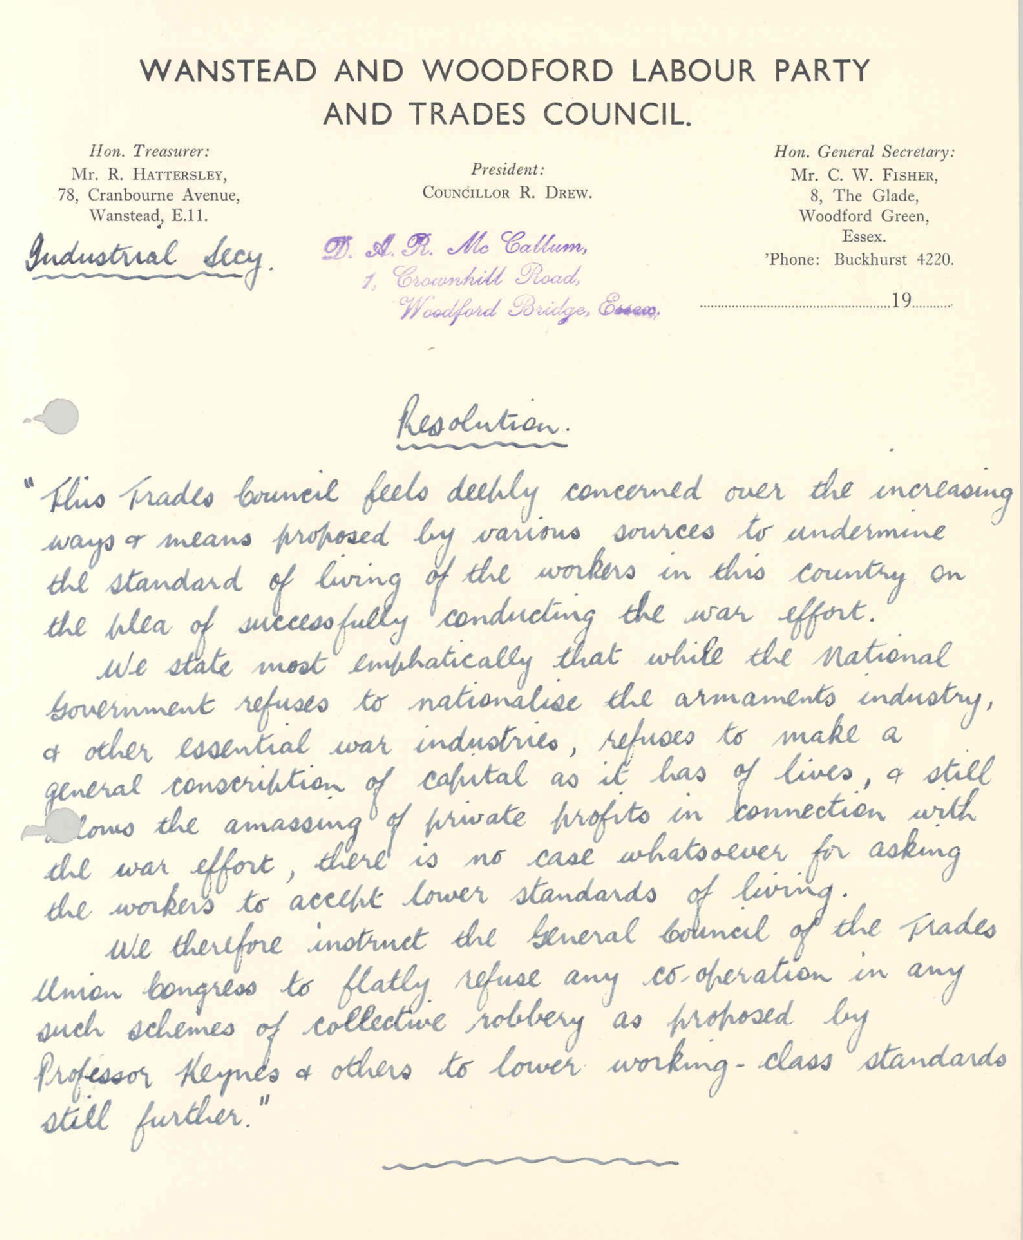 WANSTEAD AND WOODFORD LABOUR PARTY
AND TRADES COUNCIL.
Hon. Treasurer:
Mr. R. HATTERSLEY,
78, Cranbourne Avenue,
Wanstead, E.11.
President:
COUNCILLOR R. DREW.
Hon. General Secretary:
Mr. C. W. FISHER,
8, The Glade,
Woodford Green,
Essex.
'Phone: Buckhurst 4220.
Industrial Secy.
D. A. R. Mc Callum,
1, Crownhill Road,
Woodford Bridge, Essex.
19
Resolution.
"This Trades Council feels deeply concerned over the increasing
ways & means proposed by various sources to undermine
the standard of living of the workers in this country on
the plea of successfully conducting the war effort.
We state most emphatically that while the National
Government refuses to nationalise the armaments industry,
& other essential war industries, refuses to make a
general conscription of capital as it has of lives, & still
lows the amassing of private profits in connection with
the war effort, there is no case whatsoever for asking
the workers to accept lower standards of living.
We therefore instruct the General Council of the Trades
Union Congress to flatly refuse any co-operation in any
such schemes of collective robbery as proposed by
Professor Keynes & others to lower working-class standards
still further."